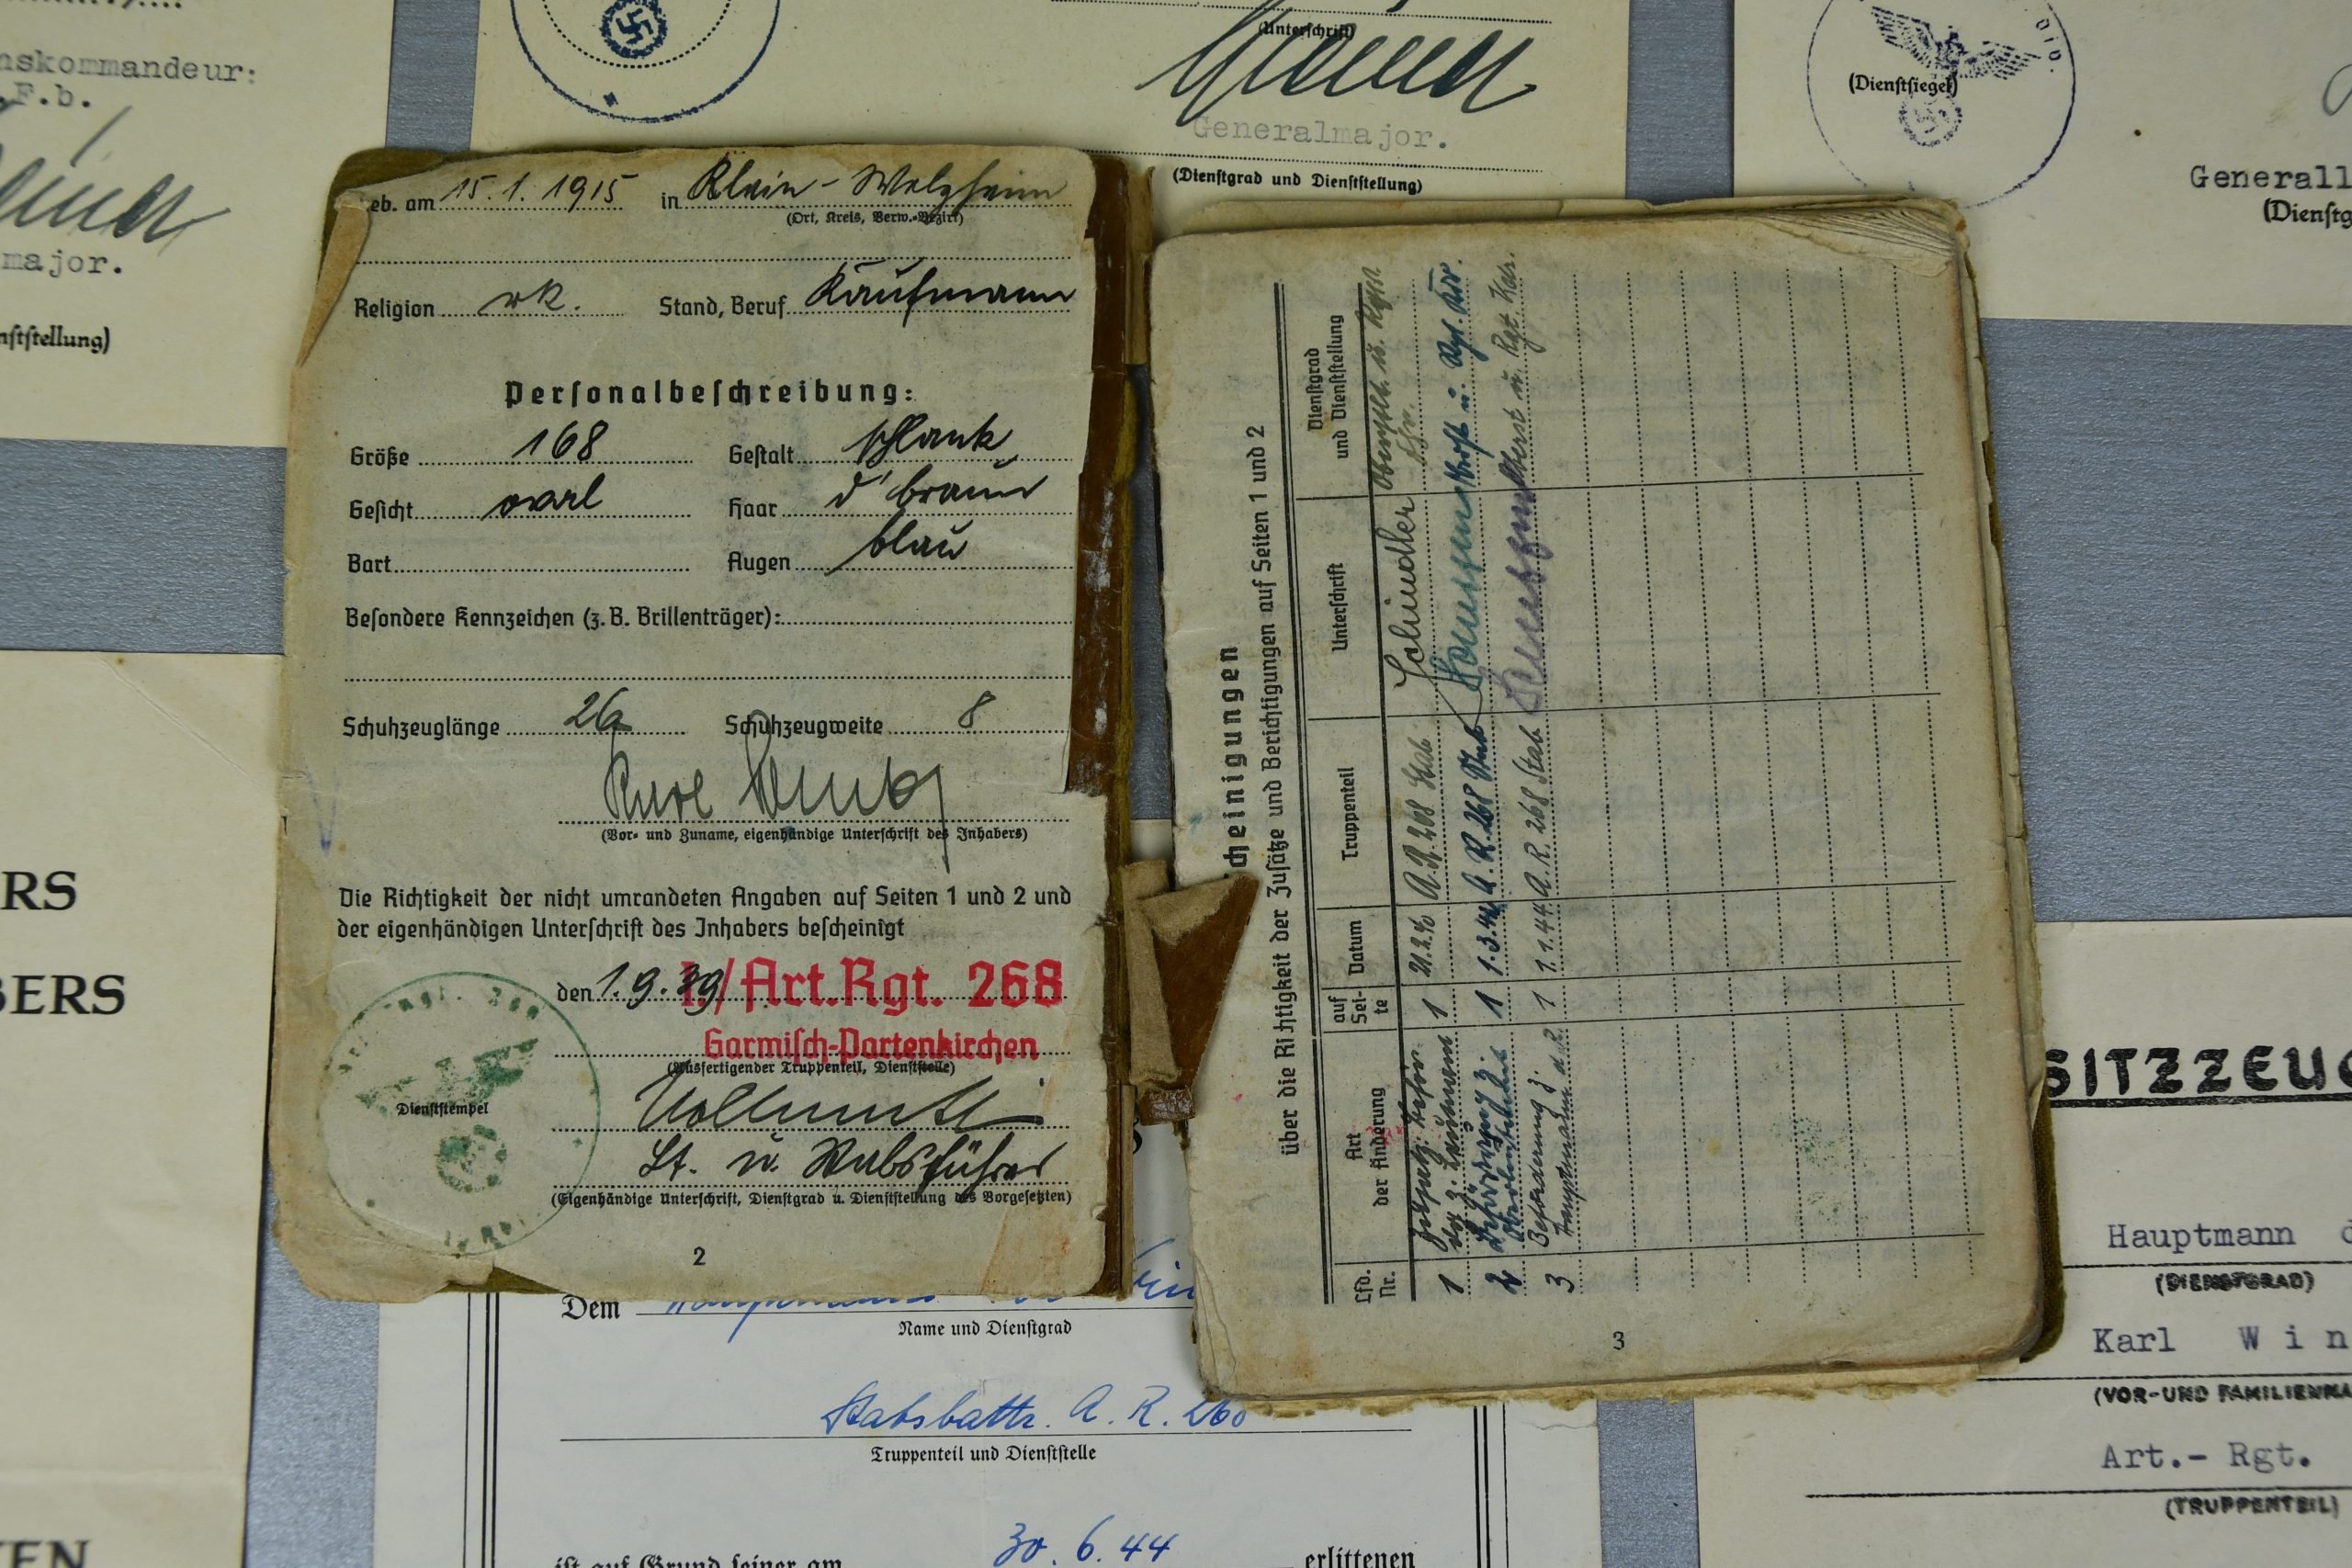 nskommandeur:
F.b.
major.
nſtſtellung)
(Unterſchrift)
Generalmajor.
(Dienſtgrad und Dienſtſtellung)
(Dienſtſiegel)
Generall
(Dienſtg
eb. am 15.1.1915 in Klein-Welzheim
(Ort, Kreis, Verw.-Bezirk)
Religion rk. Stand, Beruf Kaufmann
Perſonalbeſchreibung:
Größe 168 Geſtalt ſchlank
Geſicht oval Haar d'braun
Bart Augen blau
Beſondere Kennzeichen (z. B. Brillenträger):
Schuhzeuglänge 26 Schuhzeugweite 8
Karl
(Vor- und Zuname, eigenhändige Unterſchrift des Inhabers)
Die Richtigkeit der nicht umrandeten Angaben auf Seiten 1 und 2 und
der eigenhändigen Unterſchrift des Inhabers beſcheinigt
den 1.9.39 I./Art.Rgt. 268
Garmiſch-Partenkirchen
(Ausfertigender Truppenteil, Dienſtſtelle)
Dienſtſtempel
Lt. u. Stabsführer
(Eigenhändige Unterſchrift, Dienſtgrad u. Dienſtſtellung des Vorgeſetzten)
2
cheinigungen
über die Richtigkeit der Zuſätze und Berichtigungen auf Seiten 1 und 2
Lfd. Nr. Art der Änderung auf Sei-te Datum Truppenteil Unterſchrift Dienſtgrad und Dienſtſtellung
1 z. Leutnant 1 21.2.40 A.R. 268 Stab Schindler
2 Beförderung z. Oberleutnant 1 1.3.42 A.R. 268 Stab
3 Beförderung z. Hauptmann d.R. 1 1.1.44 A.R. 268 Stab Oberst u. Rgt. Kdr.
3
RS
BERS
EN
Dem
Name und Dienſtgrad
Stabsbattr. A. R. 260
Truppenteil und Dienſtſtelle
iſt auf Grund ſeiner am 30.6.44 erlittenen
SITZZEUG
Hauptmann d
(DIENSTGRAD)
Karl Win
(VOR-UND FAMILIENNA
Art.- Rgt.
(TRUPPENTEIL)